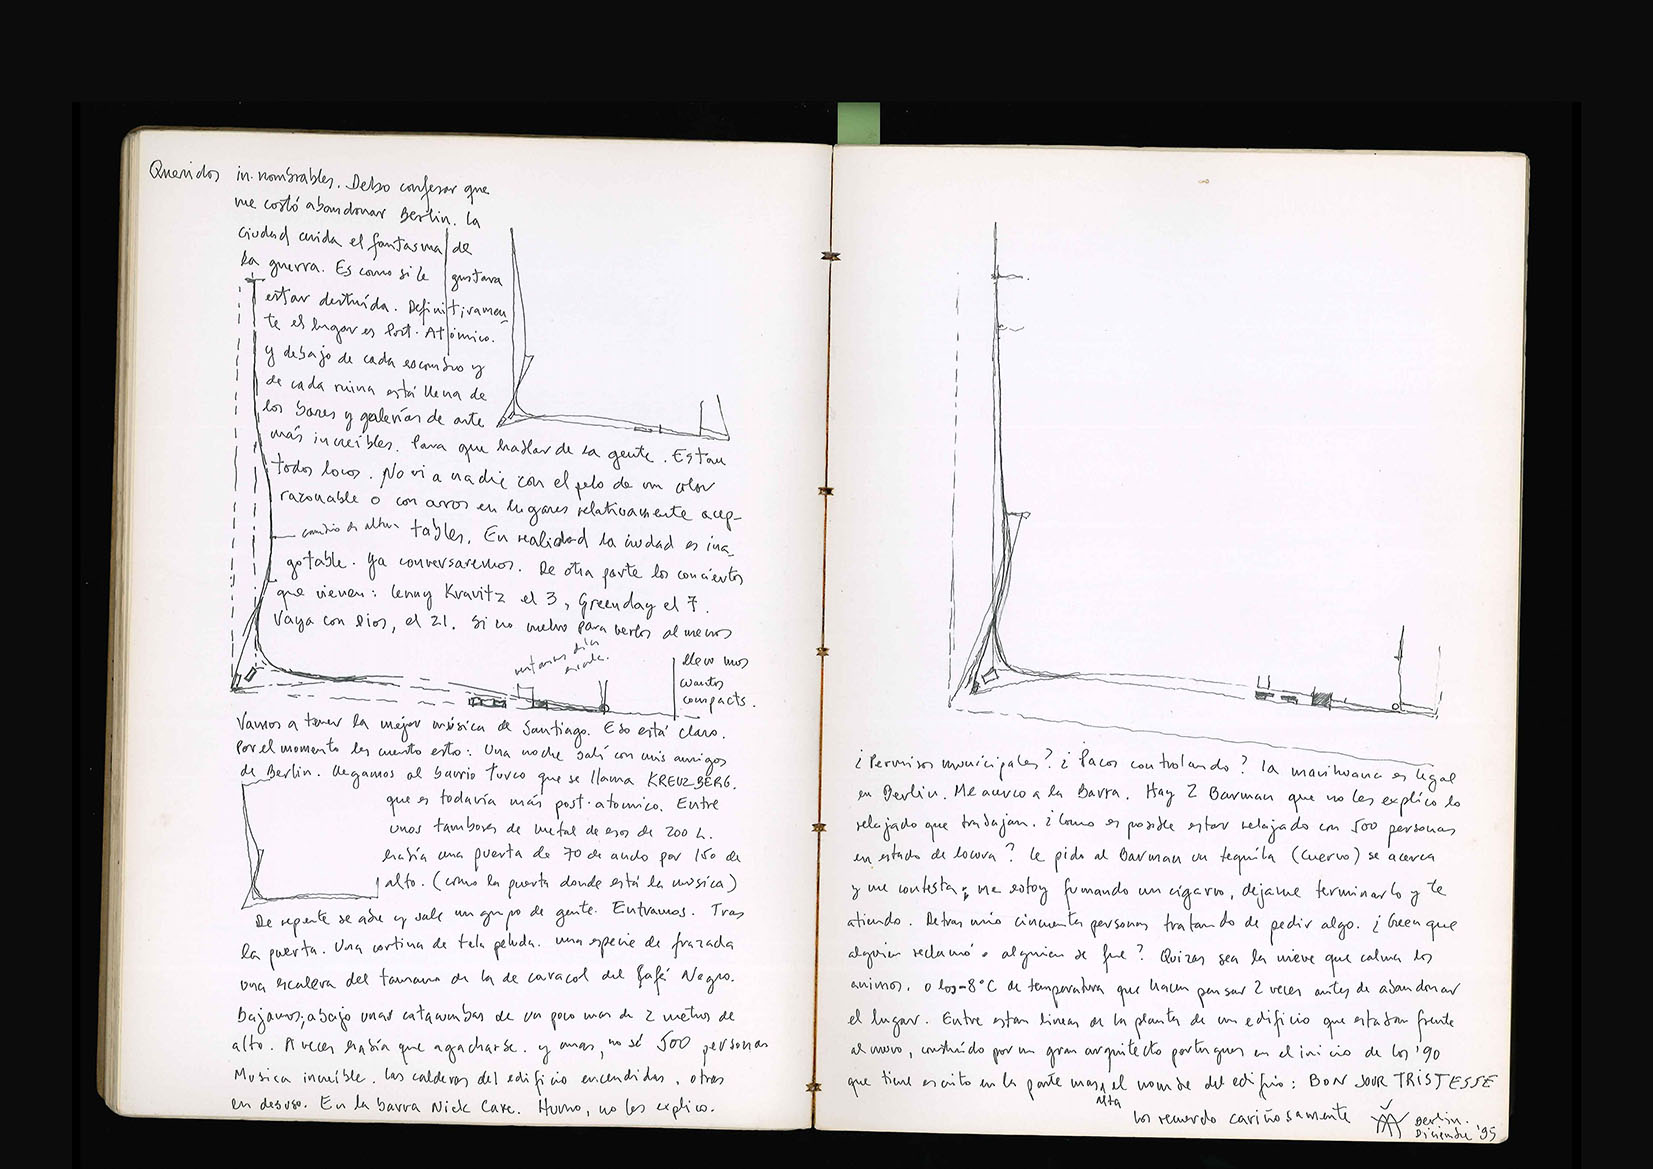 Queridos in.nombrables. Debo confesar que
me costó abandonar Berlin. La
ciudad cuida el fantasma de
la guerra. Es como si le gustara
estar destruída. Definitivamen
te el lugar es Post. Atómico.
y debajo de cada escombro y
de cada ruina está llena de
los bares y galerías de arte
más increíbles. Para que hablar de la gente. Estan
todos locos. No vi a nadie con el pelo de un color
razonable o con aros en lugares relativamente acep-
cambio de altura tables. En realidad la ciudad es ina-
gotable. Ya conversaremos. De otra parte los conciertos
que vienen: Lenny Kravitz el 3, Greenday el 7.
Vaya con Dios, el 21. Si no vuelvo para verlos al menos
llevo unos
cuantos
compacts.
Vamos a tener la mejor música de Santiago. Eso está claro.
Por el momento les cuento esto: Una noche salí con mis amigos
de Berlin. llegamos al barrio turco que se llama KREUZBERG.
que es todavía más post-atomico. Entre
unos tambores de metal de esos de 200 L.
había una puerta de 70 de ancho por 150 de
alto. (como la puerta donde está la música)
De repente se abre y sale un grupo de gente. Entramos. Tras
la puerta. Una cortina de tela peluda. una especie de frazada
una escalera del tamano de la de caracol del Café Negro.
bajamos; abajo unas catacumbas de un poco mas de 2 metros de
alto. A veces había que agacharse. y unas, no sé 500 personas
Musica increíble. Las calderas del edificio encendidas, otras
en desuso. En la barra Nick Cave. Humo, no les explico.
¿Permisos municipales? ¿Pacos controlando? la marihuana es legal
en Berlin. Me acerco a la Barra. Hay 2 Barman que no les explico lo
relajado que trabajan. ¿Como es posible estar relajado con 500 personas
en estado de locura? le pido al Barman un tequila (cuervo) se acerca
y me contesta; me estoy fumando un cigarro, dejame terminarlo y te
atiendo. Detras mio cincuenta personas tratando de pedir algo. ¿Creen que
alguien reclamó o alguien se fue? Quizas sea la nieve que calma los
animos, o los -8°C de temperatura que hacen pensar 2 veces antes de abandonar
el lugar. Entre estan lineas de la planta de un edificio que estaban frente
al muro, construído por un gran arquitecto portugues en el inicio de los '90
que tiene escrito en la parte mas alta el nombre del edificio: BON JOUR TRISTESSE
los recuerdo cariñosamente
Berlin.
Diciembre '95